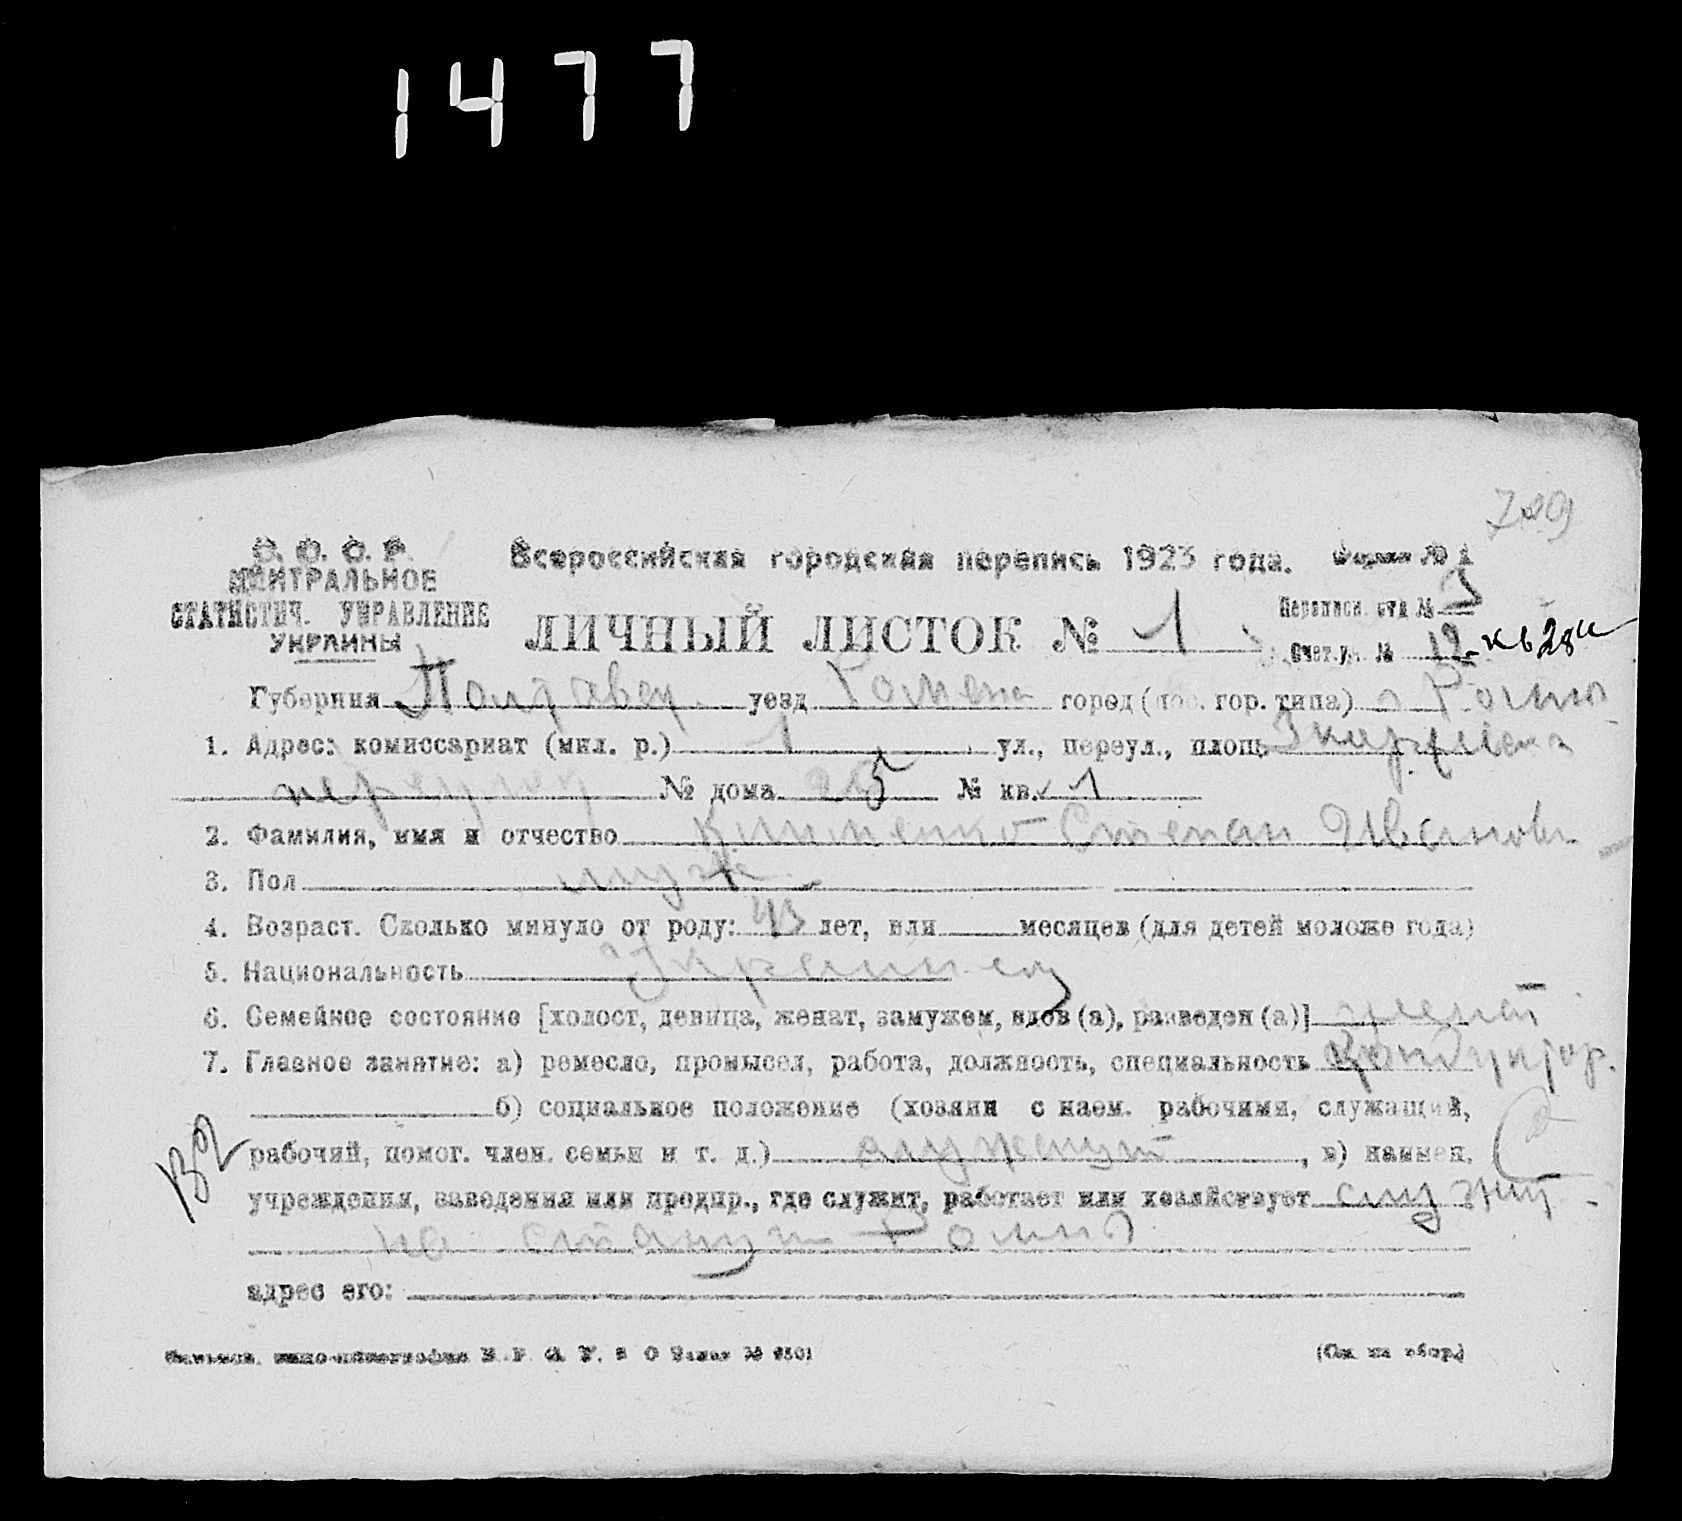 1477
729
С. С. С. Р.
ЦЕНТРАЛЬНОЕ
СТАТИСТИЧ. УПРАВЛЕНИЕ
УКРАИНЫ
Всероссийская городская перепись 1923 года. Форма № 1
Переписн. отд №
ЛИЧНЫЙ ЛИСТОК № 1
Счет. уч. № 12
Губерния Полтавск уезд Роменск город (пос. гор. типа) Ромны
1. Адрес: комиссариат (мил. р.) 1 ул., переул., площ.
переулок № дома 5 № кв. 1
2. Фамилия, имя и отчество Клименко Степан Иванов
3. Пол муж.
4. Возраст. Сколько минуло от роду: 43 лет, или месяцев (для детей моложе года)
5. Национальность Украинец
6. Семейное состояние [холост, девица, женат, замужем, вдов (а), разведен (а)] женат
7. Главное занятие: а) ремесло, промысел, работа, должность, специальность Кондуктор.
б) социальное положение (хозяин с наем. рабочими, служащий,
рабочий, помог. член. семьи и т. д.) , в) наимен.
учреждения, заведения или предпр., где служит, работает или хозяйствует служит
на станции Ромны
адрес его:
(См. на обор.)